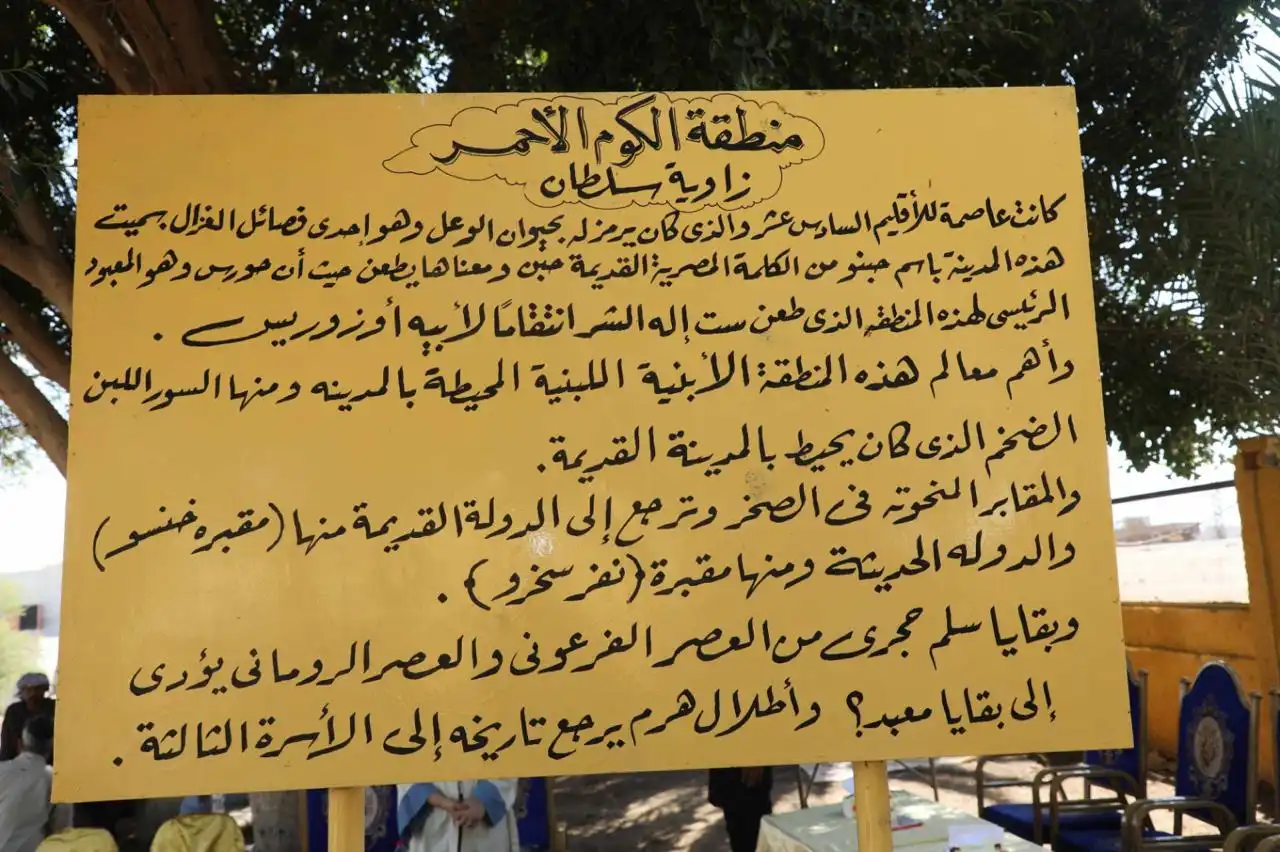 منطقة الكوم الأحمر
زاوية سلطان
كانت عاصمة للأقليم السادس عشر والذى كان يرمز له بحيوان الوعل وهو إحدى فصائل الغزال سميت
هذه المدينة باسم حبنو من الكلمة المصرية القديمة حبن ومعناها يطعن حيث أن حورس وهو المعبود
الرئيسى لهذه المنطقه الذى طعن ست إله الشر انتقاماً لأبيه أوزوريس .
وأهم معالم هذه المنطقة الأبنية اللبنية المحيطة بالمدينه ومنها السور اللبن
الضخم الذى كان يحيط بالمدينة القديمة .
والمقابر المنحوته فى الصخر وترجع إلى الدولة القديمة منها (مقبره خنسو)
والدوله الحديثة ومنها مقبرة (نفرسخرو) .
وبقايا سلم حجرى من العصر الفرعونى والعصر الرومانى يؤدى
إلى بقايا معبد؟ وأطلال هرم يرجع تاريخه إلى الأسرة الثالثة .